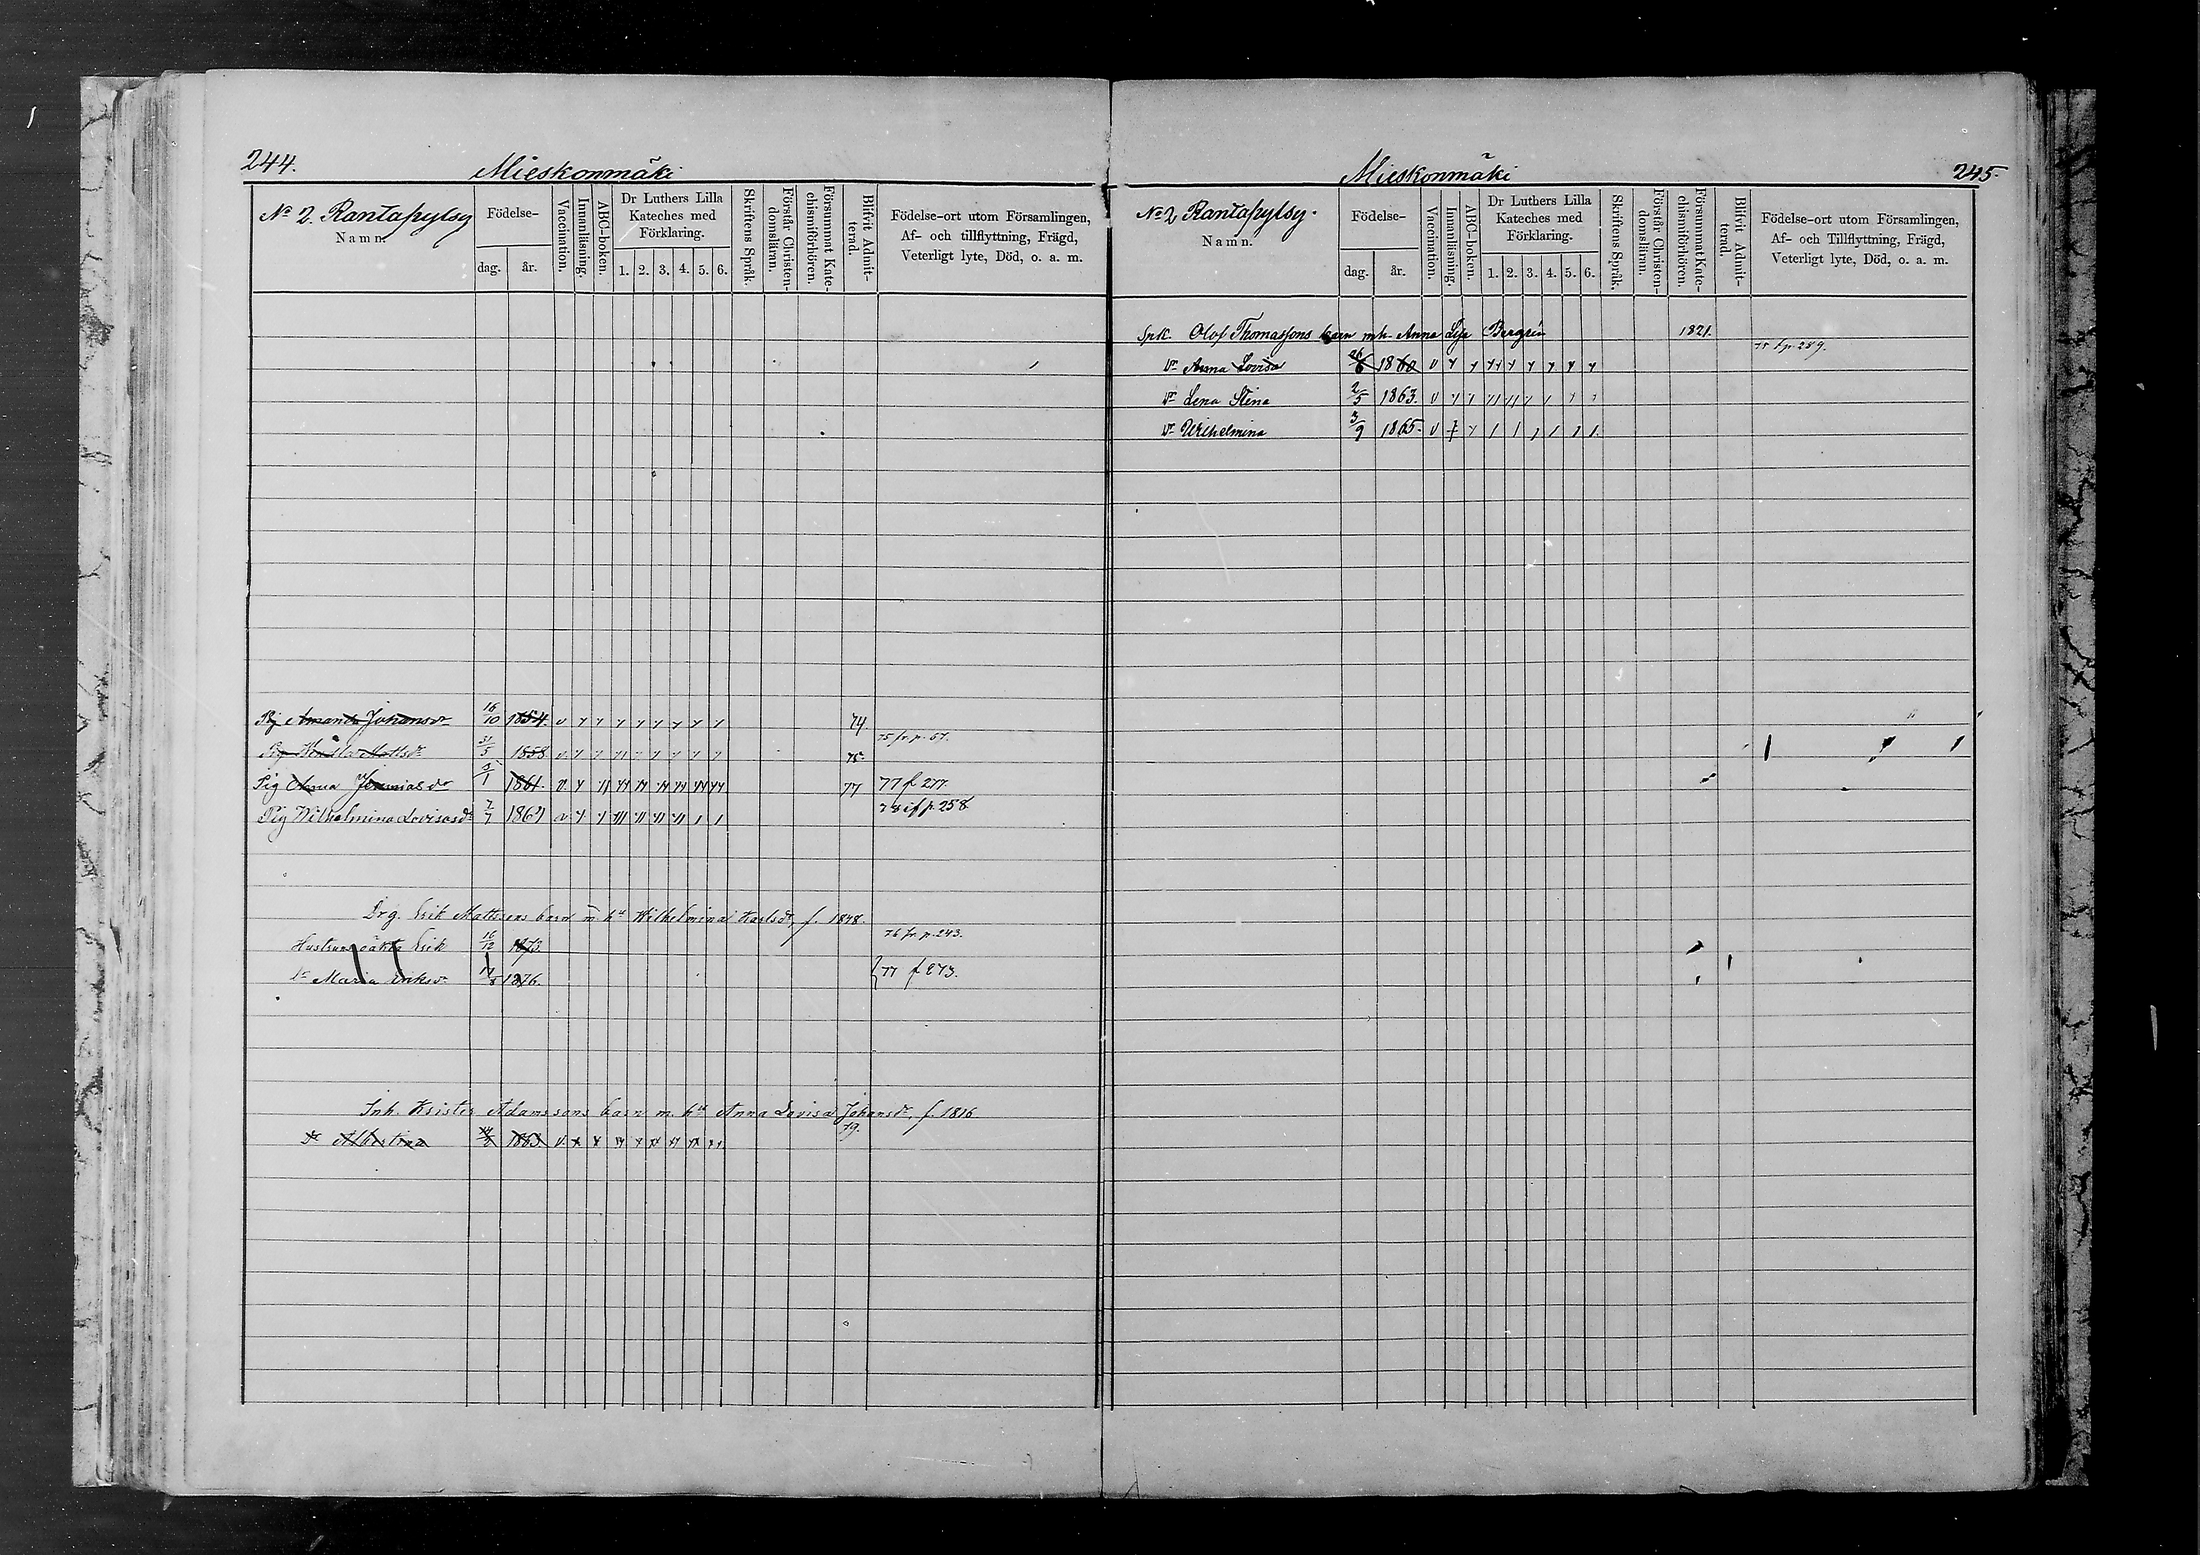 244.
Mieskonmäki
No 2. Rantapylsy
Namn.
Födelse-
dag.
år.
Vaccination.
Innanläsning.
ABC-boken.
Dr Luthers Lilla
Kateches med
Förklaring.
1. 2. 3. 4. 5. 6.
Skriftens Språk.
Förstår Christen-
domsläran.
Försummat Kate-
chismiförhören.
Blifvit Admit-
terad.
Födelse-ort utom Församlingen,
Af- och tillflyttning, Frägd,
Veterligt lyte, Död, o. a. m.
Pig Amanda Johansdr 16/10 1854. v 74.
75 fr. p. 67.
31/5 1858 v 75.
Pig Anna Jeremiasdr 5/1 1861. v. 77 77 f 277.
Pig Wilhelmina Lovisasdr 7/7 1861 v 78 if p. 258
Drg. Erik Mattsens barn m. hu Wilhelmina Karlsdr, f. 1848.
Hustruns oäkta Erik 16/12 1873 76 fr. p. 243.
Dr Maria Eriksdr 1876. 77 f 273.
Inh. Krister Adamssons barn m. hu Anna Lovisa Johansdr, f. 1816
79.
Dr Albertina 1863. v.
Mieskonmäki
245.
No 2 Rantapylsy.
Namn.
Födelse-
dag.
år.
Vaccination.
Innanläsning.
ABC-boken.
Dr Luthers Lilla
Kateches med
Förklaring.
1. 2. 3. 4. 5. 6.
Skriftens Språk.
Förstår Christen-
domsläran.
Försummat Kate-
chismiförhören.
Blifvit Admit-
terad.
Födelse-ort utom Församlingen,
Af- och Tillflyttning, Frägd,
Veterligt lyte, Död, o. a. m.
Spk. Olof Thomassons barn mh Anna Lisa Bergrén 1821.
75 t. p. 289.
Dr Anna Lovisa 26/6 1860 v
Dr Lena Stina 2/5 1863. v
Dr Wilhelmina 3/9 1865. v